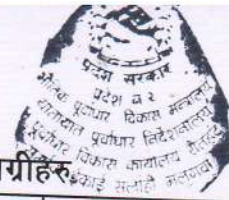 प्रदेश सरकार
प्रदेश नं २
भौतिक पूर्वाधार विकास मन्त्रालय
यातायात पूर्वाधार निर्देशनालय
पूर्वाधार विकास कार्यालय रौतहट
ईकाई सर्लाही मलंगवा
ग्रीहरु